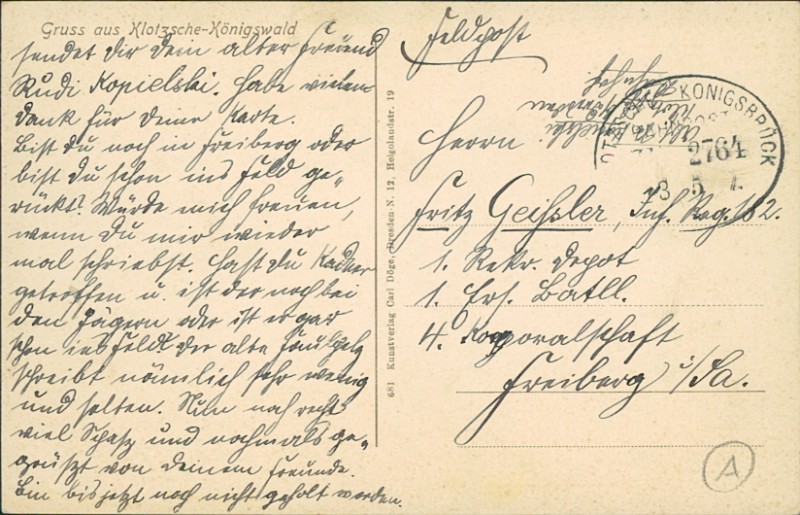 Gruss aus Klotzsche-Königswald
sendet dir dein alter Freund
Rudi Kopielski. Habe vielen
Dank für deine Karte.
Bist du noch in Freiberg oder
bist du schon ins Feld ge-
rückt? Würde mich freuen,
wenn du mir wieder
mal schriebst. Hast du
getroffen u. ist der noch bei
den Jägern oder ist er gar
schon ins Feld? Der alte
schreibt nämlich sehr wenig
und selten. Nun noch recht
viel und nochmals ge-
grüßt von deinem Freunde.
Bin bis jetzt noch nicht geholt worden.
681 Kunstverlag Carl Döge, Dresden-N. 12, Helgolandstr. 19
Feldpost
KÖNIGSBRÜCK
BAHNPOST
2764
3 5
Herrn
Fritz Geißler, Inf. Reg. 182.
1. Rekr. Depot
1. Ers. Batll.
4. Korporalschaft
Freiberg i/Sa.
A